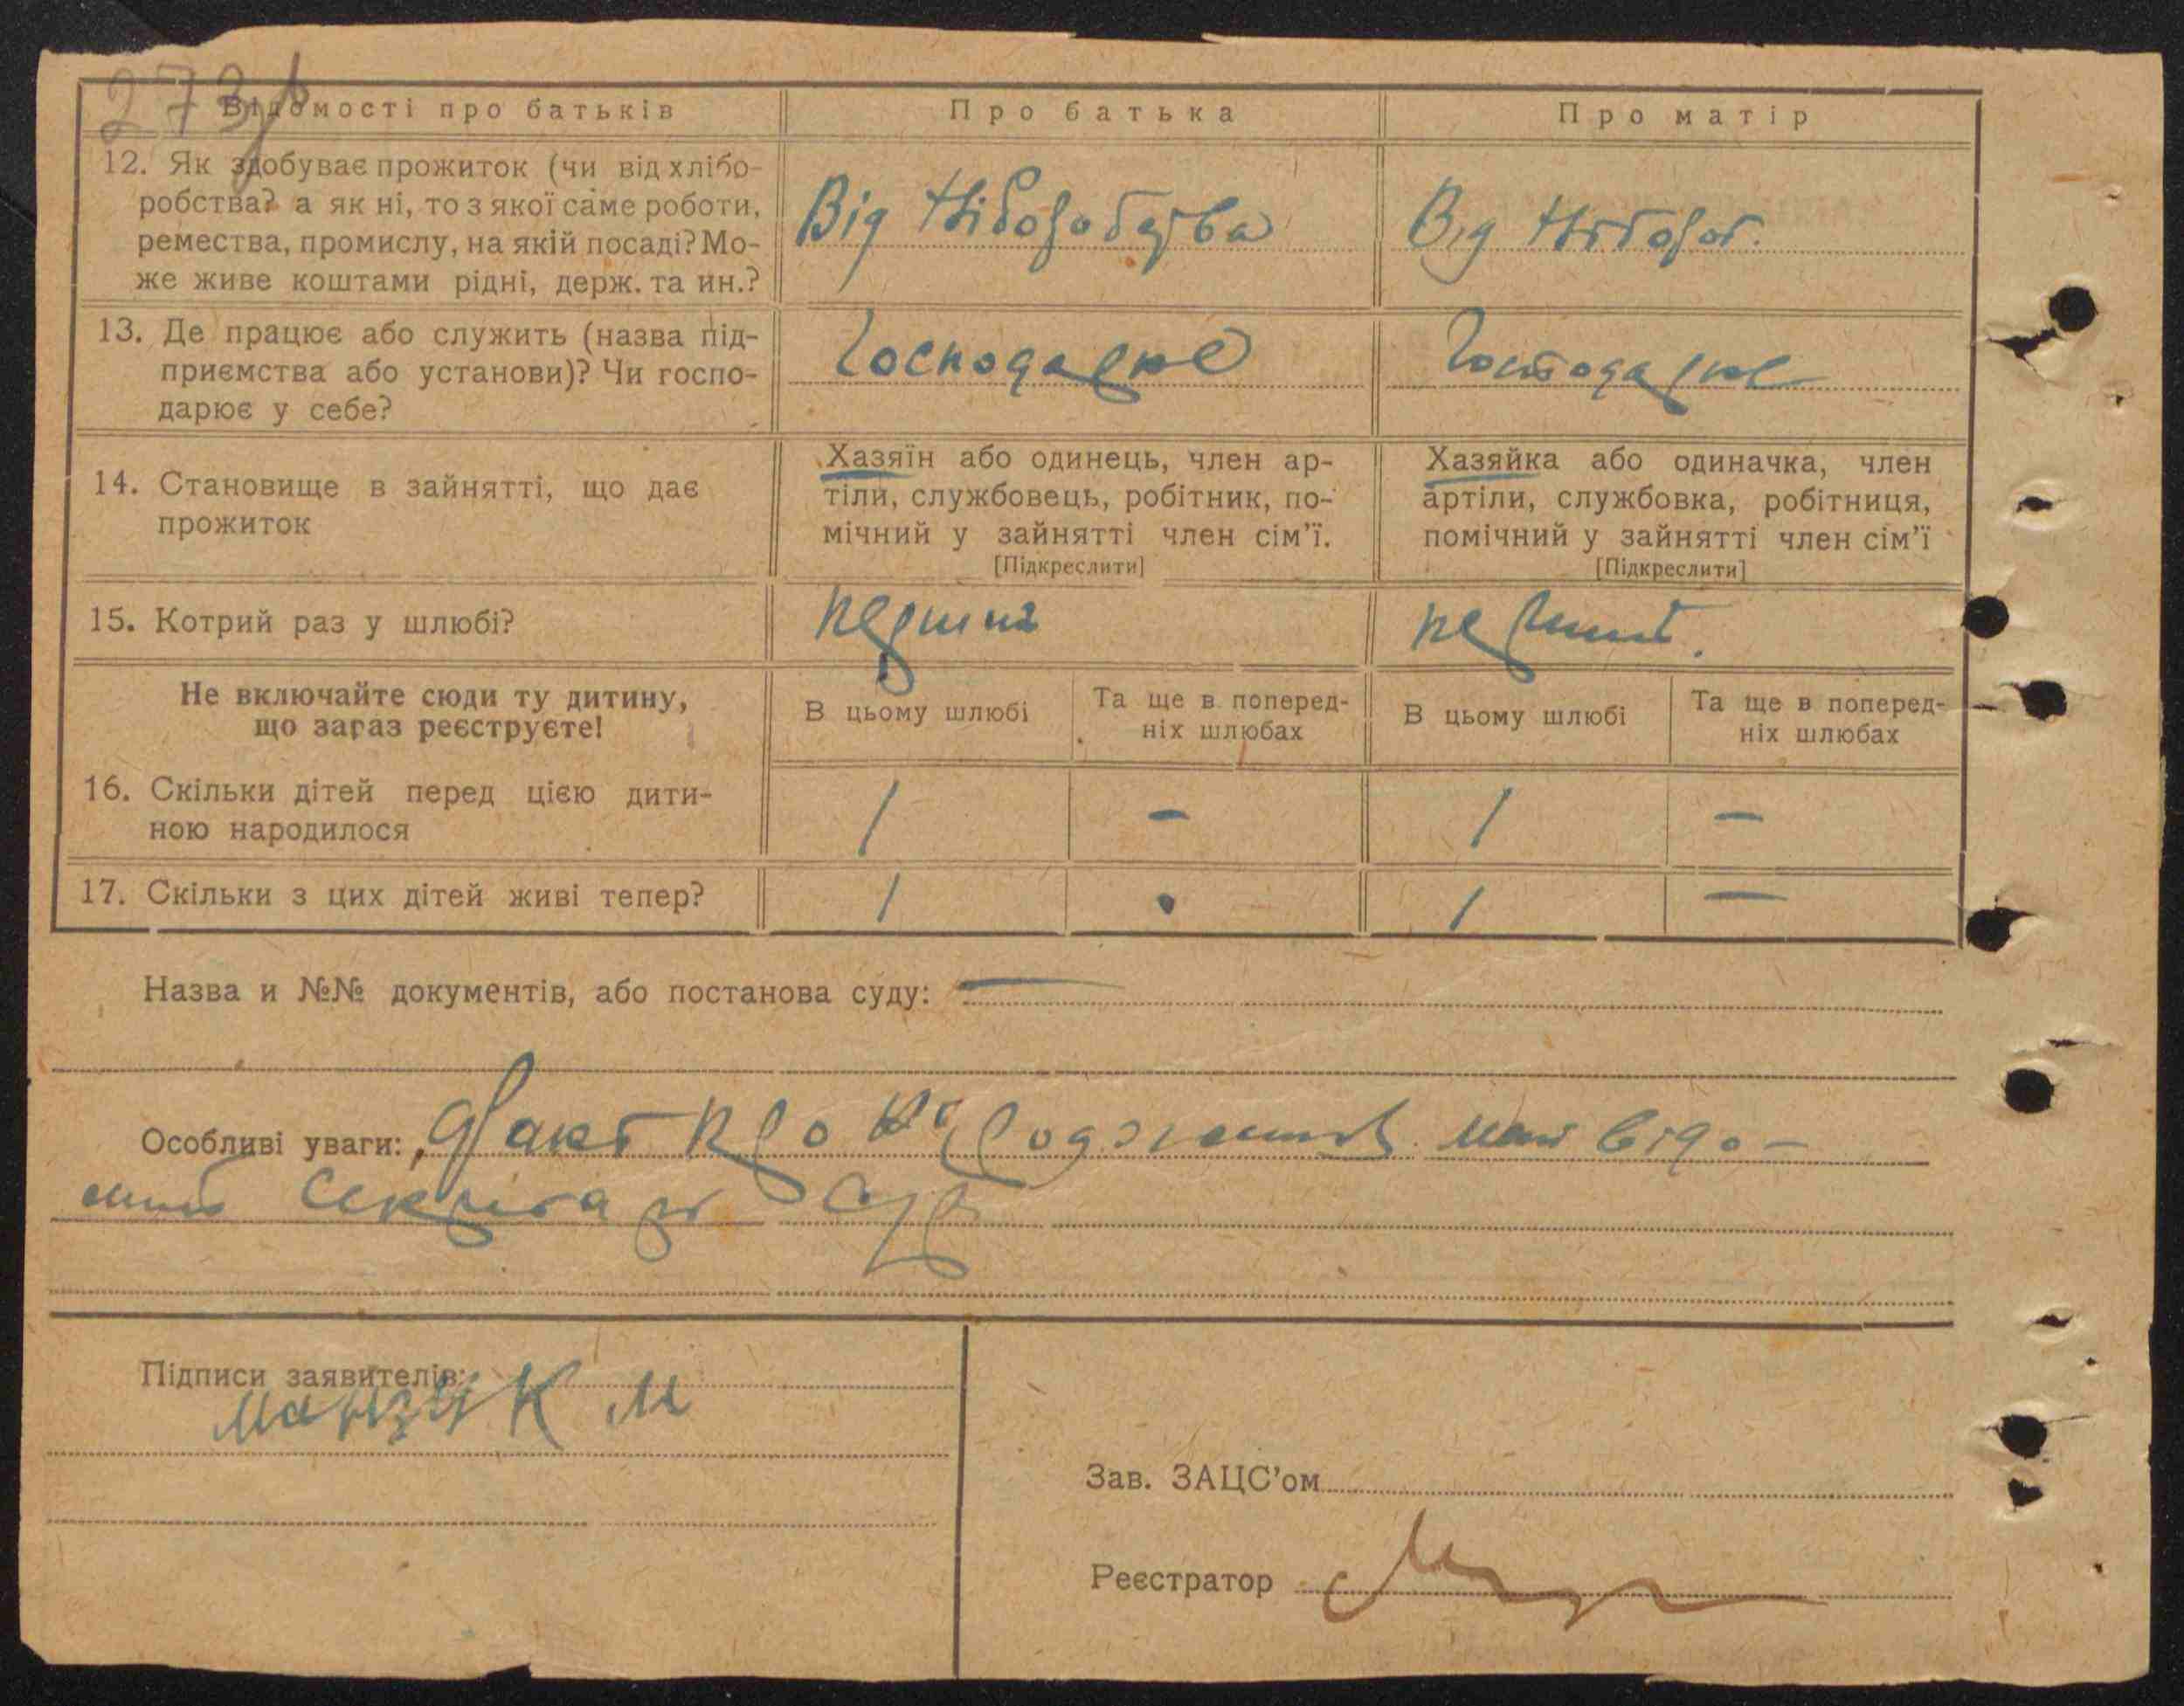 273
Відомості про батьків
Про батька
Про матір
12. Як здобуває прожиток (чи від хлібо-
робства? а як ні, то з якої саме роботи,
ремества, промислу, на якій посаді? Мо-
же живе коштами рідні, держ. та ин.?
Від хліборобства
Від хлібороб.
13. Де працює або служить (назва під-
приємства або установи)? Чи госпо-
дарює у себе?
Господарює
Господарює
14. Становище в зайнятті, що дає
прожиток
Хазяїн або одинець, член ар-
тіли, службовець, робітник, по-
мічний у зайнятті член сім'ї.
[Підкреслити]
Хазяйка або одиначка, член
артіли, службовка, робітниця,
помічний у зайнятті член сім'ї
[Підкреслити]
15. Котрий раз у шлюбі?
перший
перший.
Не включайте сюди ту дитину,
що зараз реєструєте!
В цьому шлюбі
Та ще в поперед-
ніх шлюбах
В цьому шлюбі
Та ще в поперед-
ніх шлюбах
16. Скільки дітей перед цією дити-
ною народилося
1
-
1
-
17. Скільки з цих дітей живі тепер?
1
1
-
Назва и №№ документів, або постанова суду: —
Особливі уваги: Факт про народження відо-
мий секретар
Підписи заявителів:
Манзик М
Зав. ЗАЦС'ом
Реєстратор